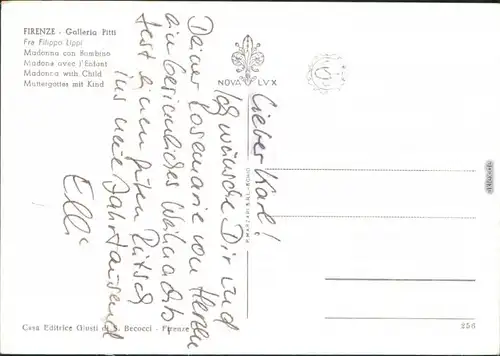 FIRENZE - Galleria Pitti
Fra Filippo Lippi
Madonna con Bambino
Madone avec l'Enfant
Madonna with Child
Muttergottes mit Kind
NOVA LVX
Lieber Karl!
Ich wünsche Dir und
Deiner Rosemarie von Herzen
ein besinnliches Weihnachts
fest, einen guten Rutsch
ins neue Jahrtausend
Elli
Casa Editrice Giusti di S. Becocci - Firenze
256